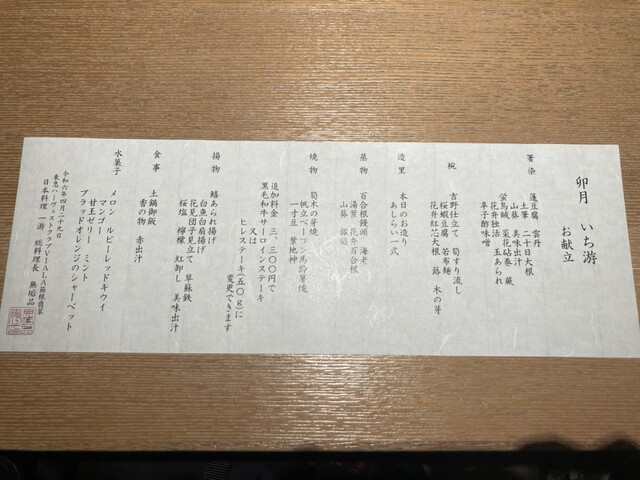 卯月　いち游
お献立
箸染
蓬豆腐　雲丹
土筆　二十日大根
山葵　美味出汁
蛍烏賊　菜花砧巻　蕨
花弁独活　玉あられ
辛子酢味噌
椀
吉野仕立て　筍すり流し
桜蝦豆腐　若布麺
花弁紅芯大根　蕗　木の芽
造里
本日のお造り
あしらい一式
蒸物
百合根饅頭　海老
湯葉　花弁百合根
山葵　銀餡
焼物
筍木の芽焼
帆立ベーコン馬鈴薯焼
一寸豆　葉地神
追加料金　三、三〇〇円で
黒毛和牛サーロインステーキ
又は
ヒレステーキ(五〇g)に
変更できます
揚物
鰆あられ揚げ
白魚白扇揚げ
花見団子見立て　草蘇鉄
桜塩　檸檬　紅卸し　美味出汁
食事
土鍋御飯
香の物　赤出汁
水菓子
メロン　ルビーレッドキウイ
マンゴー
甘王ゼリー　ミント
ブラッドオレンジのシャーベット
令和六年四月二十九日
東急ハーヴェストクラブVIALA箱根翡翠
日本料理　一游　総料理長　無垢品